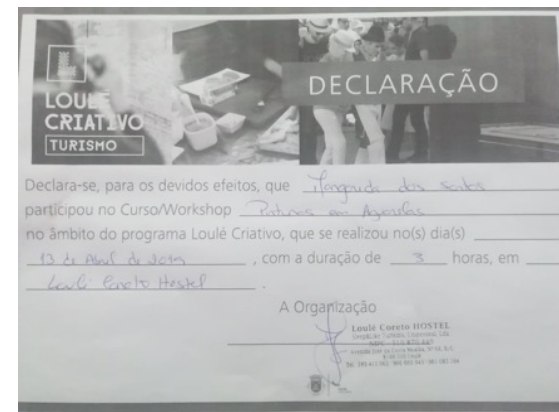 LOULÉ
CRIATIVO
TURISMO
DECLARAÇÃO
Declara-se, para os devidos efeitos, que Margarida dos Santos
participou no Curso/Workshop Pinturas em Aguarelas
no âmbito do programa Loulé Criativo, que se realizou no(s) dia(s)
13 de Abril de 2019, com a duração de 3 horas, em
Loulé Coreto Hostel.
A Organização
Loulé Coreto HOSTEL